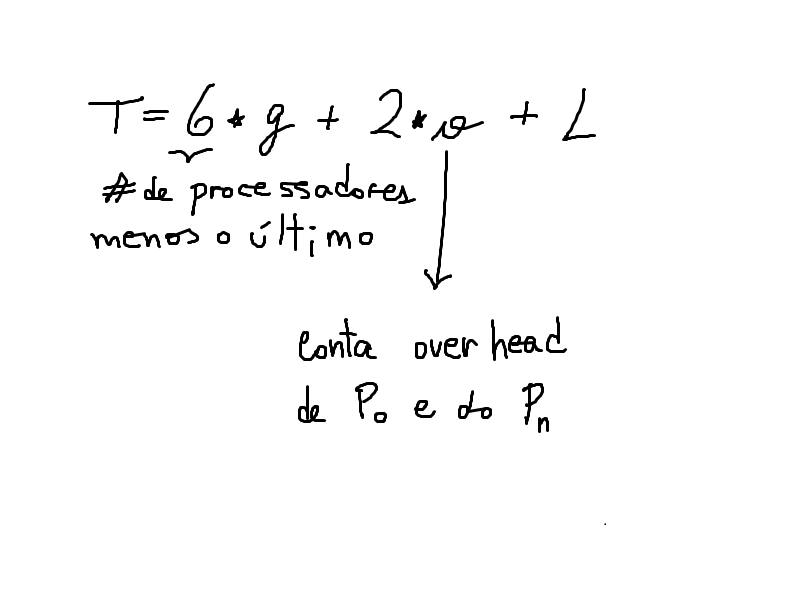 T = 6 * g + 2 * o + L
# de processadores
menos o último
conta overhead
de P₀ e do Pₙ